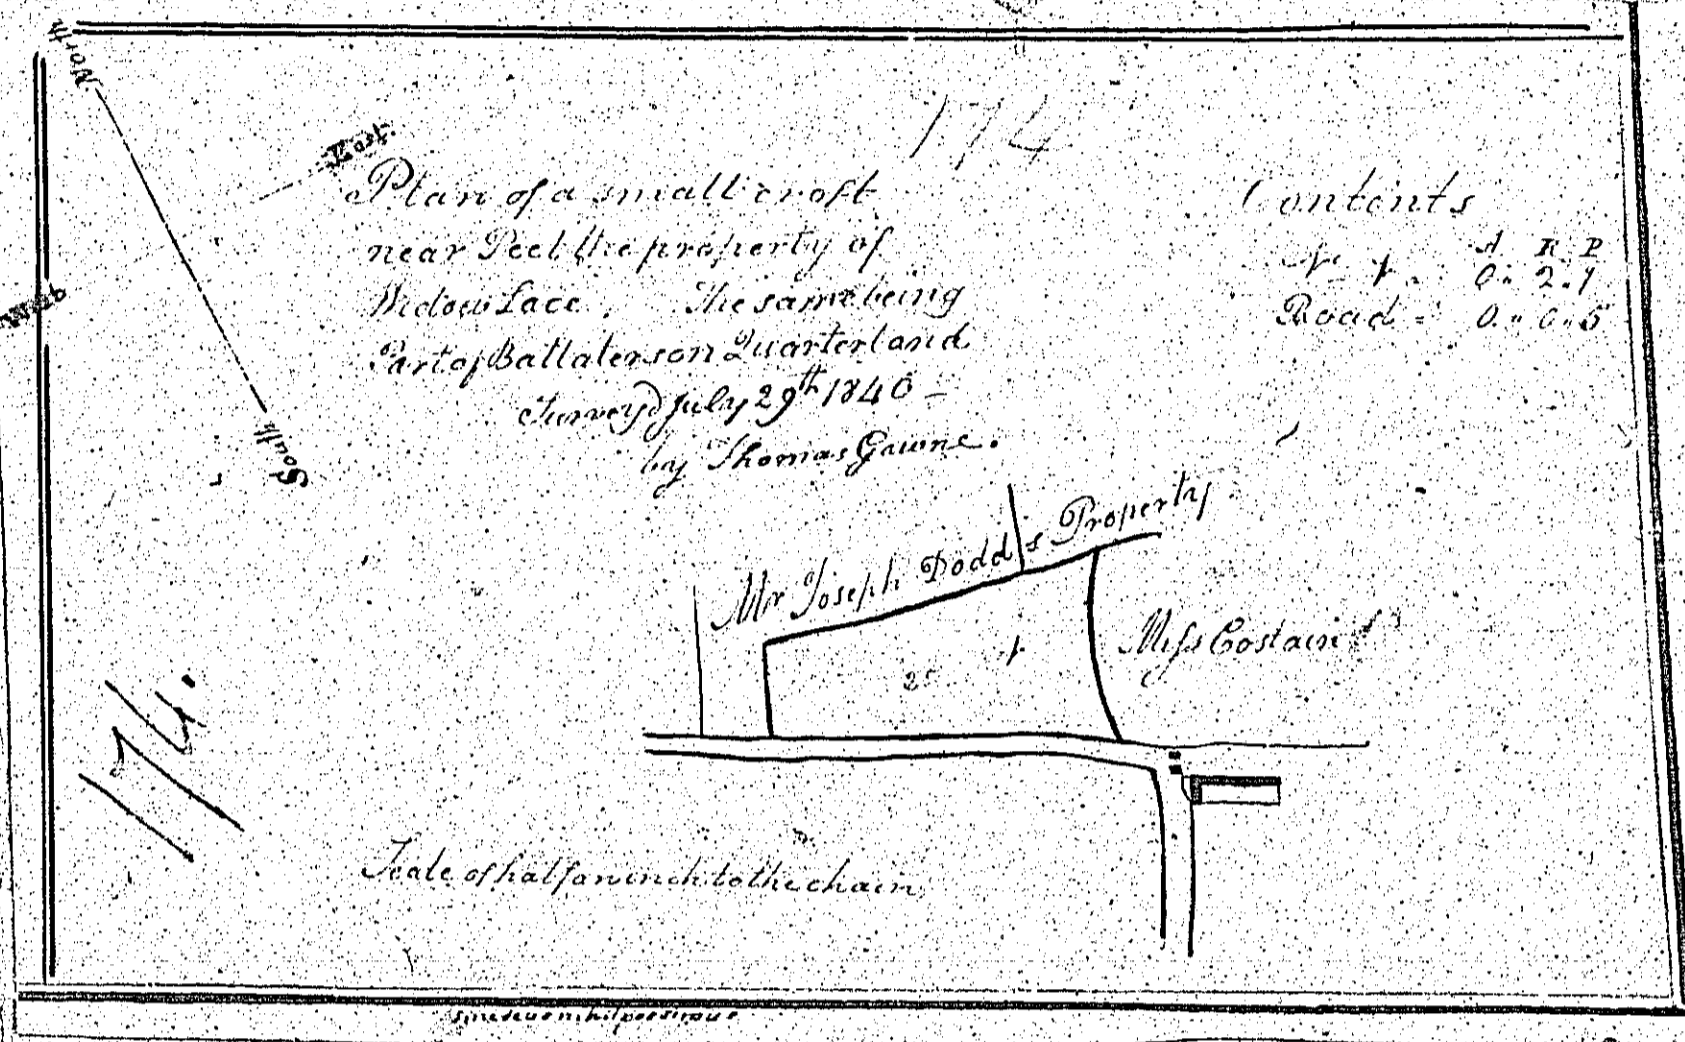 North
East
South
West
174
Plan of a small croft
near Peel the property of
Widow Lace. The same being
Part of Ballaterson Quarterland
Survey'd July 29th 1840
by Thomas Gawne.
Contents
A R P
No 1 . 0 .. 2 . 1
Road = 0 .. 0 .. 5
Mr Joseph Dodds Property
1
Miss Costain's
174.
Scale of half an inch to the chain